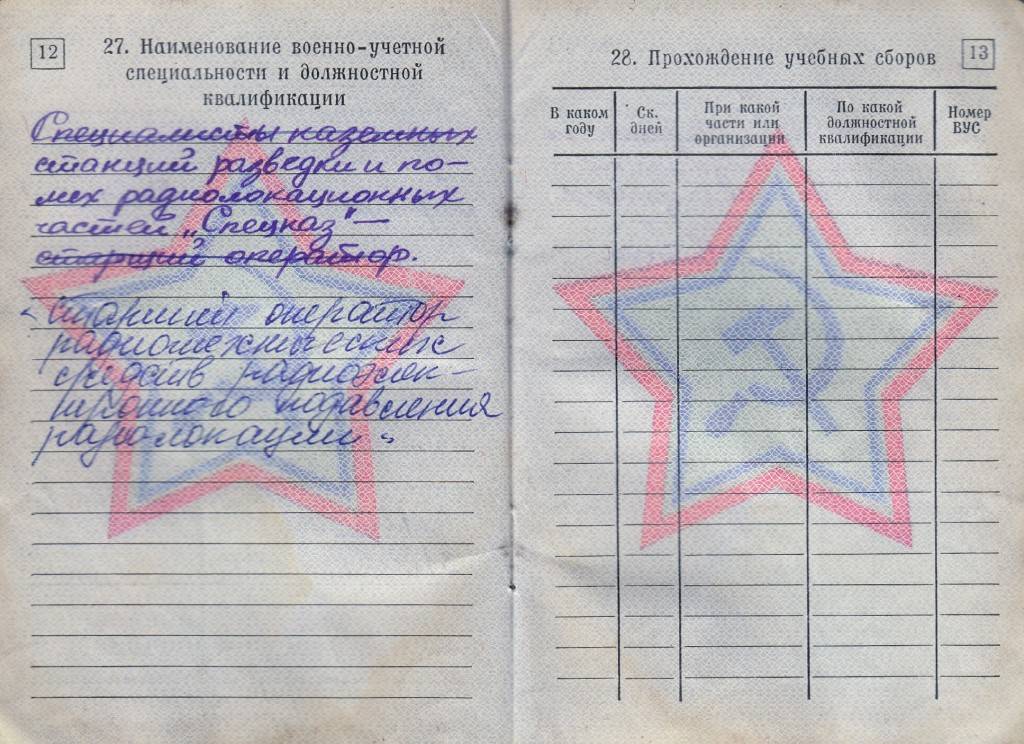 12
27. Наименование военно-учетной
специальности и должностной
квалификации
Специалисты наземных
станций разведки и по-
мех радиолокационных
частей „Спецназ" —
старший оператор.
„Старший оператор
радиотехнических
средств радиоэлек-
тронного подавления
радиолокации"
28. Прохождение учебных сборов
13
В каком
году
Ск.
дней
При какой
части или
организации
По какой
должностной
квалификации
Номер
ВУС